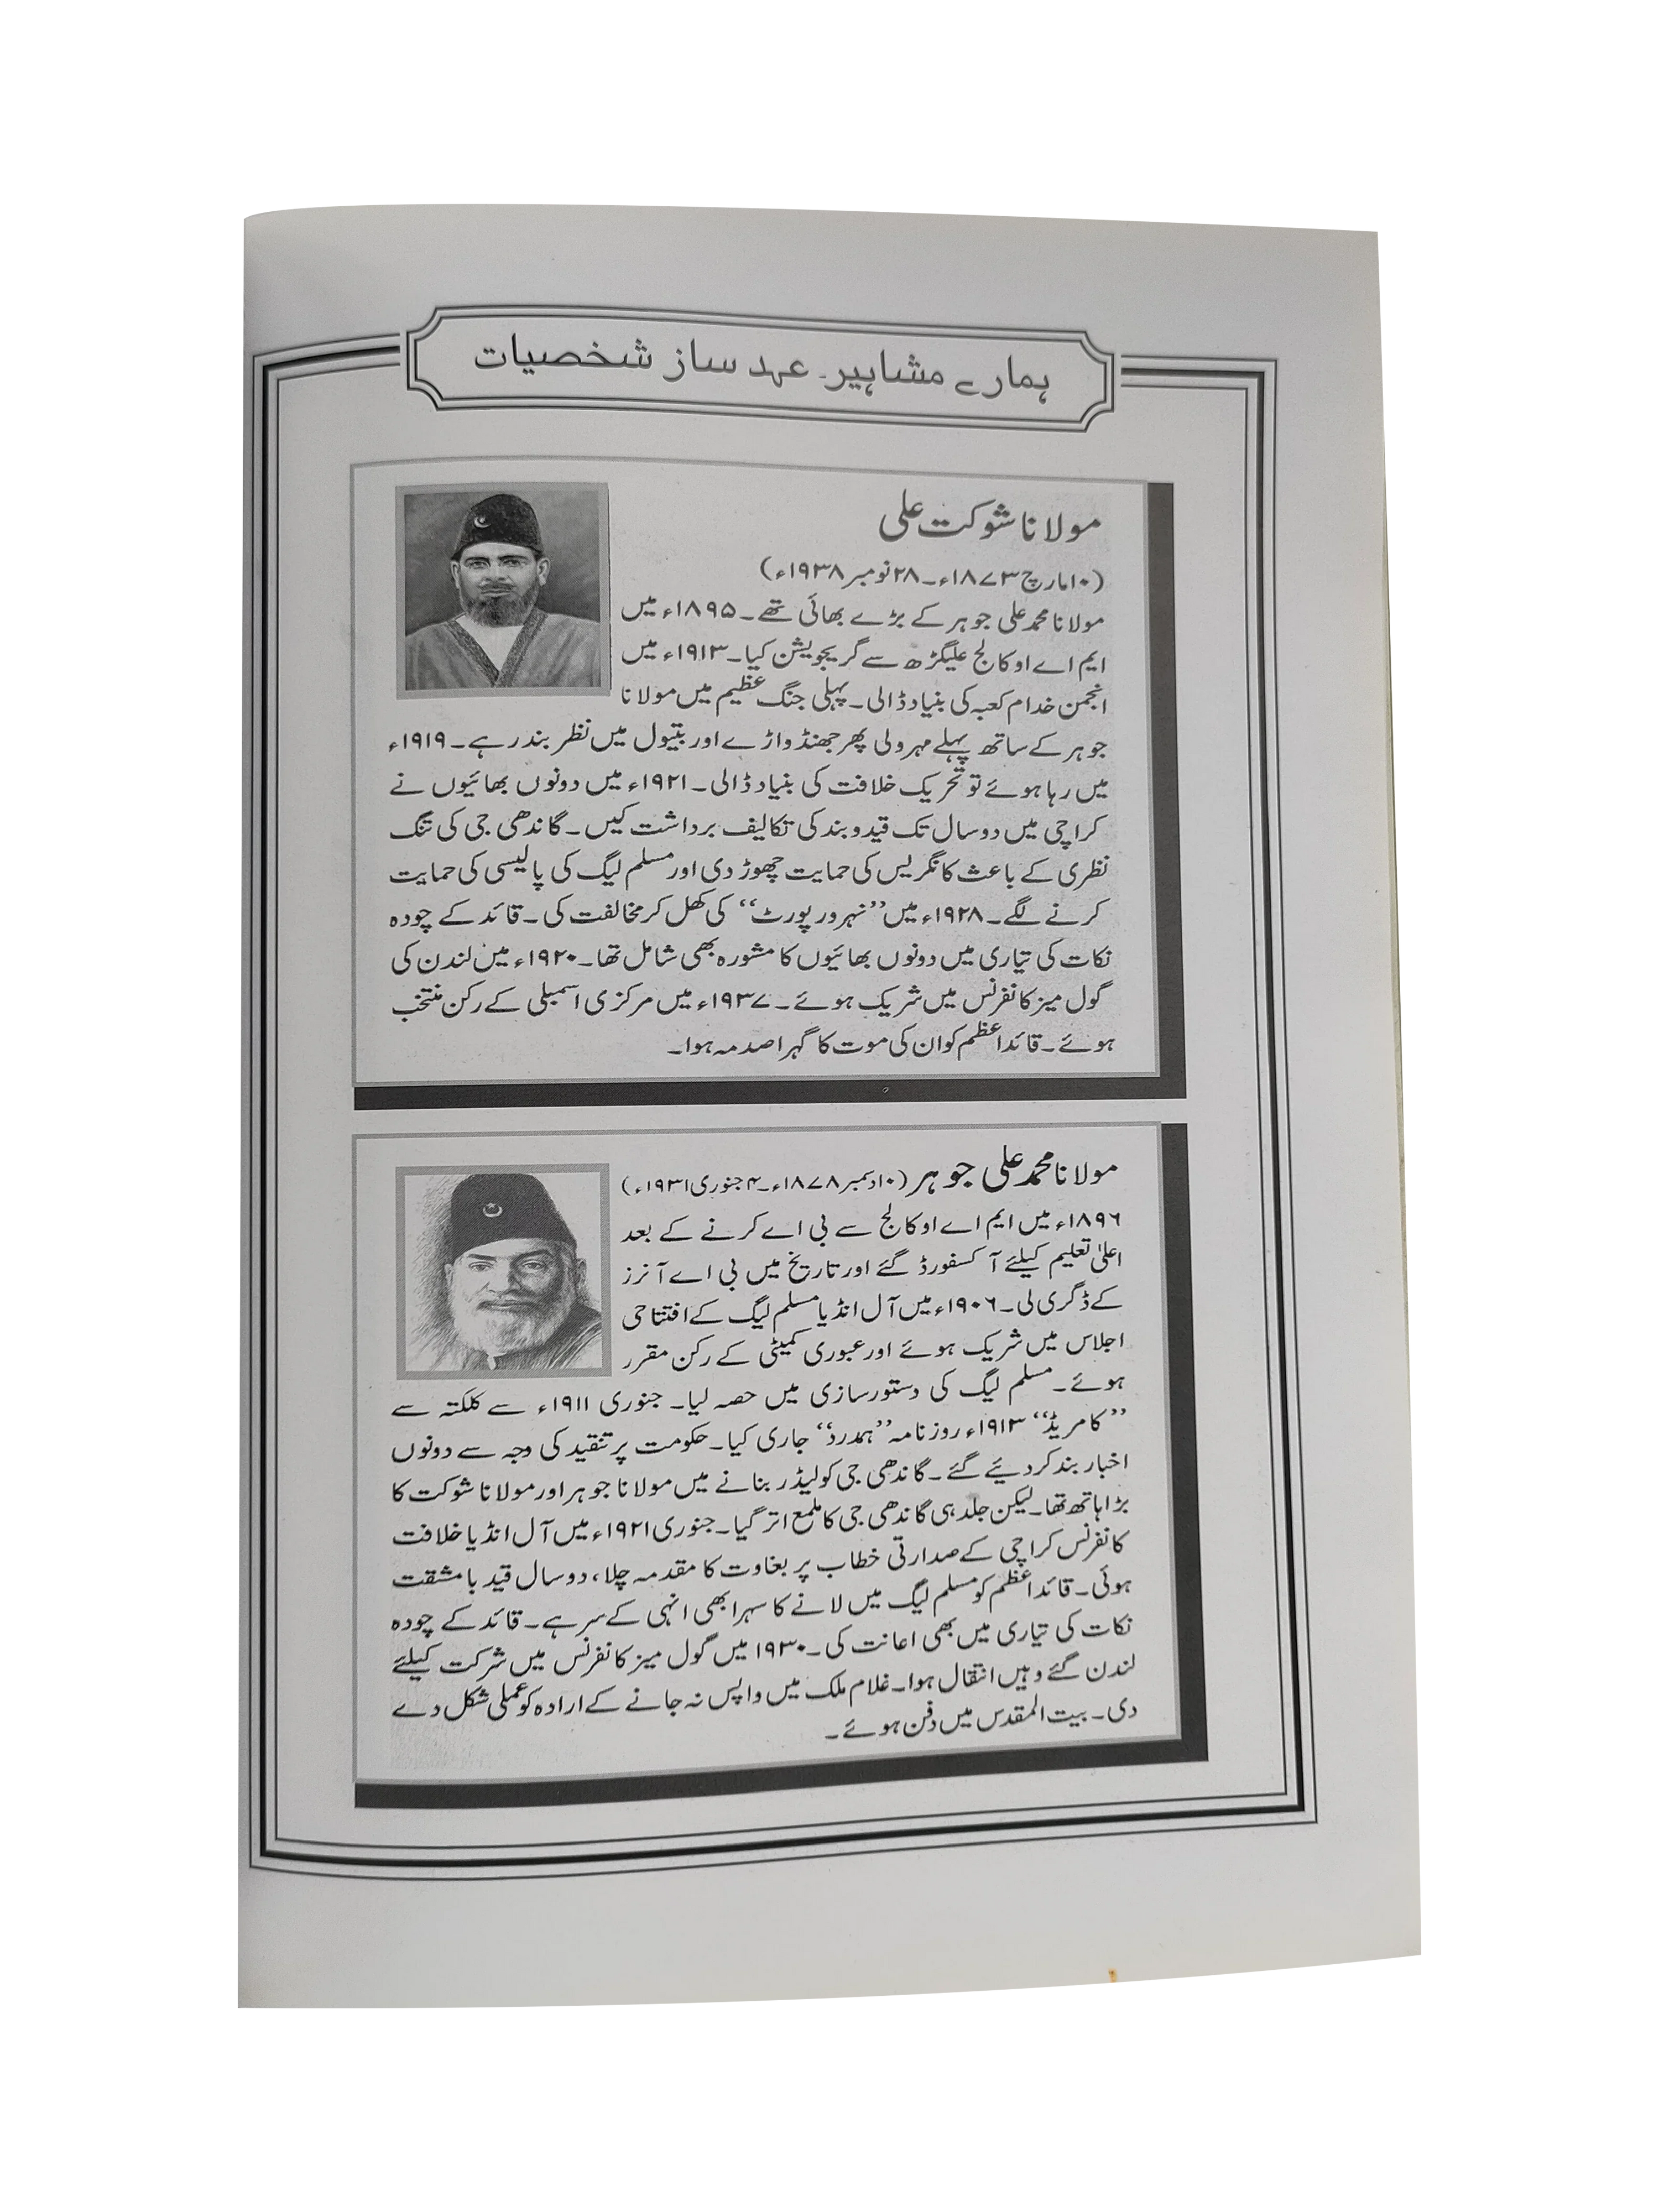 ہمارے مشاہیر۔ عہد ساز شخصیات
مولانا شوکت علی
(۱۰مارچ ۱۸۷۳ء۔ ۲۸ نومبر ۱۹۳۸ء)
مولانا محمد علی جوہر کے بڑے بھائی تھے۔ ۱۸۹۵ء میں
ایم اے او کالج علیگڑھ سے گریجویشن کیا۔ ۱۹۱۳ء میں
انجمن خدام کعبہ کی بنیاد ڈالی۔ پہلی جنگ عظیم میں مولانا
جوہر کے ساتھ پہلے مہرولی پھر جھنڈواڑے اور بتیول میں نظر بند رہے۔ ۱۹۱۹ء
میں رہا ہوئے تو تحریک خلافت کی بنیاد ڈالی۔ ۱۹۲۱ء میں دونوں بھائیوں نے
کراچی میں دو سال تک قید و بند کی تکالیف برداشت کیں۔ گاندھی جی کی تنگ
نظری کے باعث کانگریس کی حمایت چھوڑ دی اور مسلم لیگ کی پالیسی کی حمایت
کرنے لگے۔ ۱۹۲۸ء میں ”نہرو رپورٹ“ کی کھل کر مخالفت کی۔ قائد کے چودہ
نکات کی تیاری میں دونوں بھائیوں کا مشورہ بھی شامل تھا۔ ۱۹۲۰ء میں لندن کی
گول میز کانفرنس میں شریک ہوئے۔ ۱۹۳۷ء میں مرکزی اسمبلی کے رکن منتخب
ہوئے۔ قائداعظم کو ان کی موت کا گہرا صدمہ ہوا۔
مولانا محمد علی جوہر (۱۰دسمبر ۱۸۷۸ء۔ ۴ جنوری ۱۹۳۱ء)
۱۸۹۶ء میں ایم اے او کالج سے بی اے کرنے کے بعد
اعلیٰ تعلیم کیلئے آکسفورڈ گئے اور تاریخ میں بی اے آنرز
کے ڈگری لی۔ ۱۹۰۶ء میں آل انڈیا مسلم لیگ کے افتتاحی
اجلاس میں شریک ہوئے اور عبوری کمیٹی کے رکن مقرر
ہوئے۔ مسلم لیگ کی دستور سازی میں حصہ لیا۔ جنوری ۱۹۱۱ء سے کلکتہ سے
”کامریڈ“ ۱۹۱۳ء روزنامہ ”ہمدرد“ جاری کیا۔ حکومت پر تنقید کی وجہ سے دونوں
اخبار بند کر دیئے گئے۔ گاندھی جی کو لیڈر بنانے میں مولانا جوہر اور مولانا شوکت کا
بڑا ہاتھ تھا۔ لیکن جلد ہی گاندھی جی کا ملمع اتر گیا۔ جنوری ۱۹۲۱ء میں آل انڈیا خلافت
کانفرنس کراچی کے صدارتی خطاب پر بغاوت کا مقدمہ چلا، دو سال قید با مشقت
ہوئی۔ قائداعظم کو مسلم لیگ میں لانے کا سہرا بھی انہی کے سر ہے۔ قائد کے چودہ
نکات کی تیاری میں بھی اعانت کی۔ ۱۹۳۰ میں گول میز کانفرنس میں شرکت کیلئے
لندن گئے وہیں انتقال ہوا۔ غلام ملک میں واپس نہ جانے کے ارادہ کو عملی شکل دے
دی۔ بیت المقدس میں دفن ہوئے۔